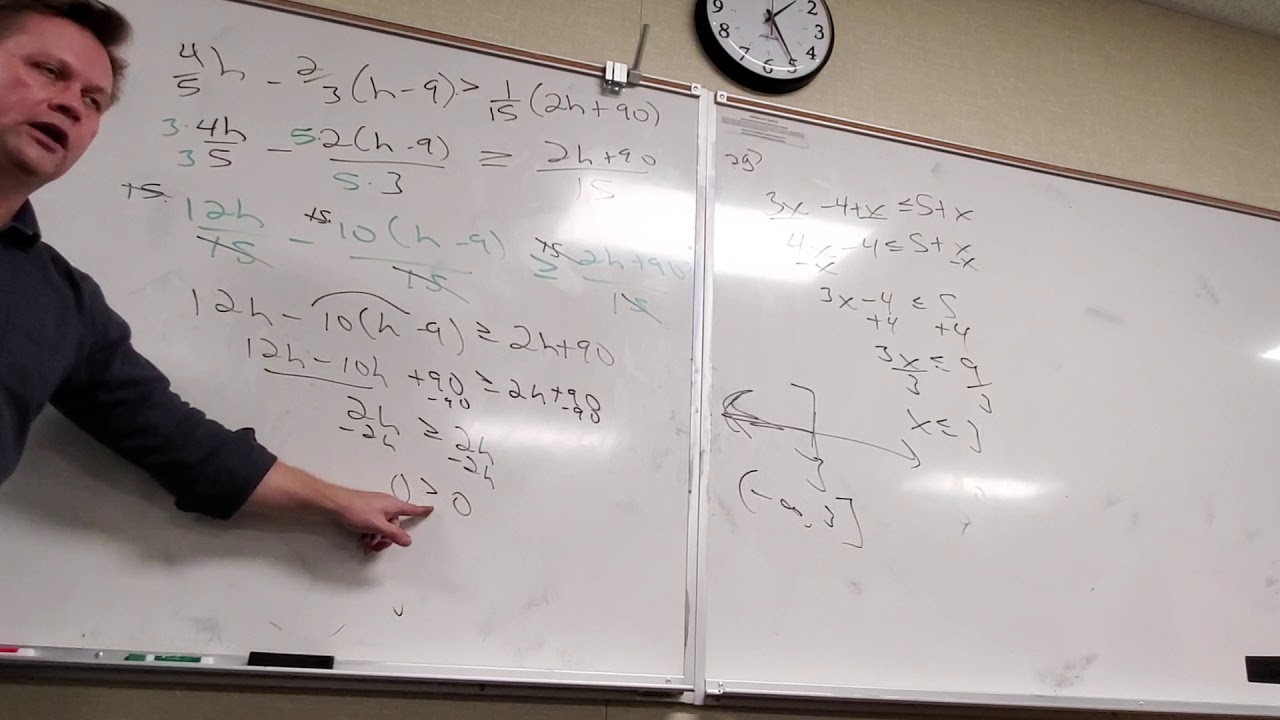 9 2 8 3 7 6 5 4
4/5 h - 2/3 (h-9) > 1/15 (2h+90)
3·4h/3·5 - 5·2(h-9)/5·3 ≥ 2h+90/15
15· 12h/15 - 15· 10(h-9)/15 ≥ 15· 2h+90/15
12h - 10(h-9) ≥ 2h+90
12h - 10h +90 ≥ 2h+90
-90 -90
2h ≥ 2h
-2h -2h
0 > 0
3x -4+x ≤ 5+x
4x -4 ≤ 5+x
-x -x
3x -4 ≤ 5
+4 +4
3x/3 ≤ 9/3
x ≤ 3
3
(-∞, 3]